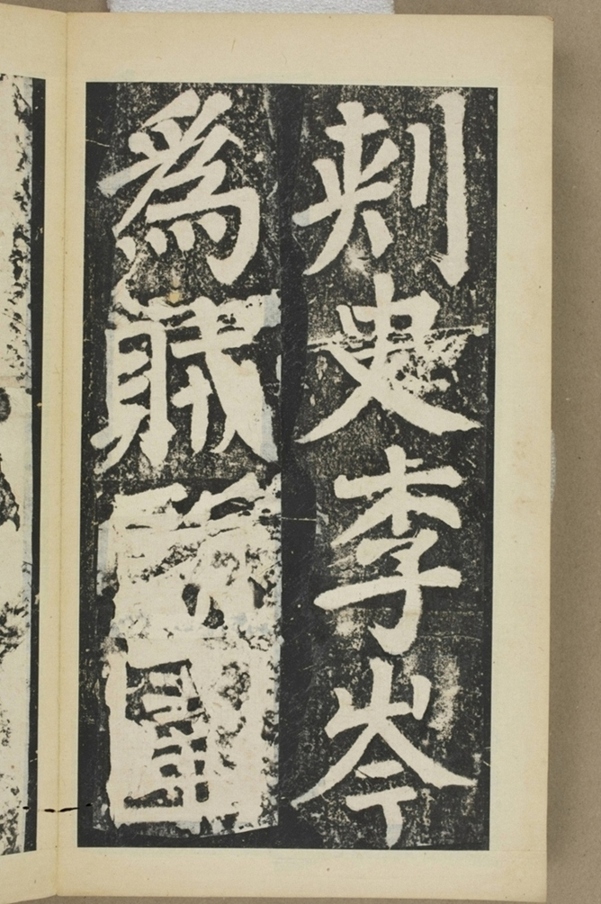 刺史李岑
為賊所圍